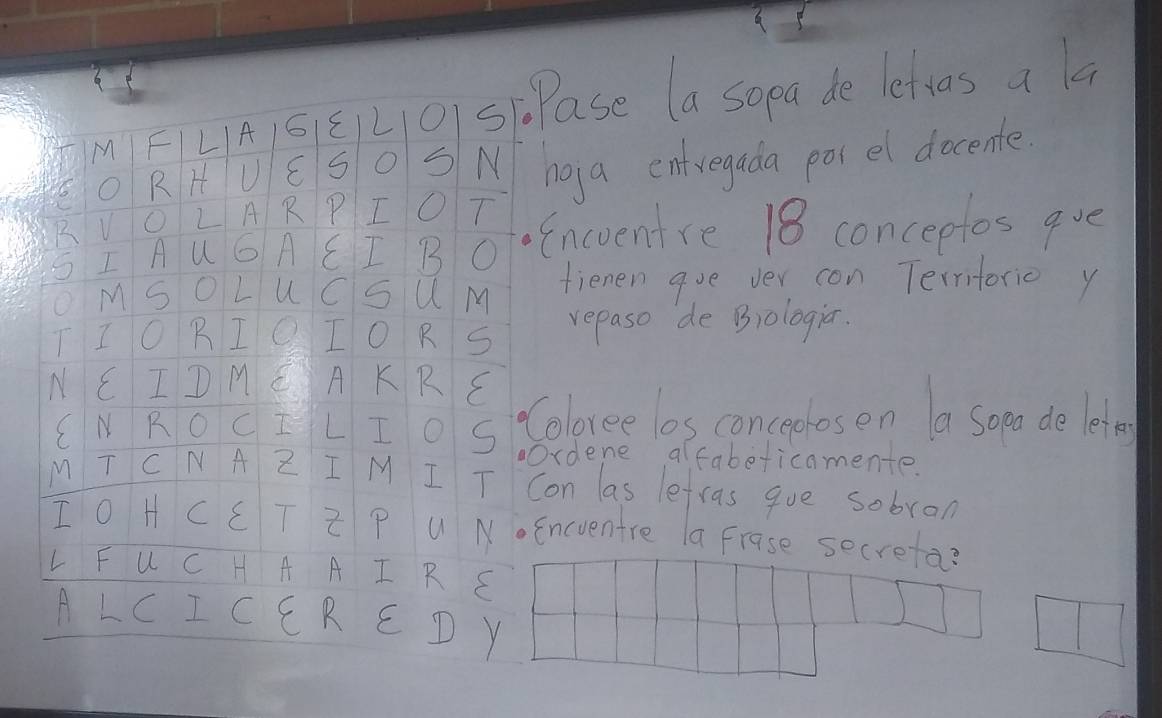 T M F L A G E L O S
E O R H U E S O S N
R V O L A R P I O T
S I A U G A E I B O
O M S O L U C S U M
T I O R I O I O R S
N E I D M E A K R E
E N R O C I L I O S
M T C N A Z I M I T
I O H C E T Z P U N
L F U C H A A I R E
A L C I C E R E D Y
• Pase la sopa de letras a la
hoja entregada por el docente.
• Encuentre 18 conceptos que
tienen que ver con Territorio y
repaso de Biología.
• Coloree los conceptos en la sopa de letras
• Ordene alfabeticamente.
Con las letras que sobran
• Encuentre la Frase secreta: